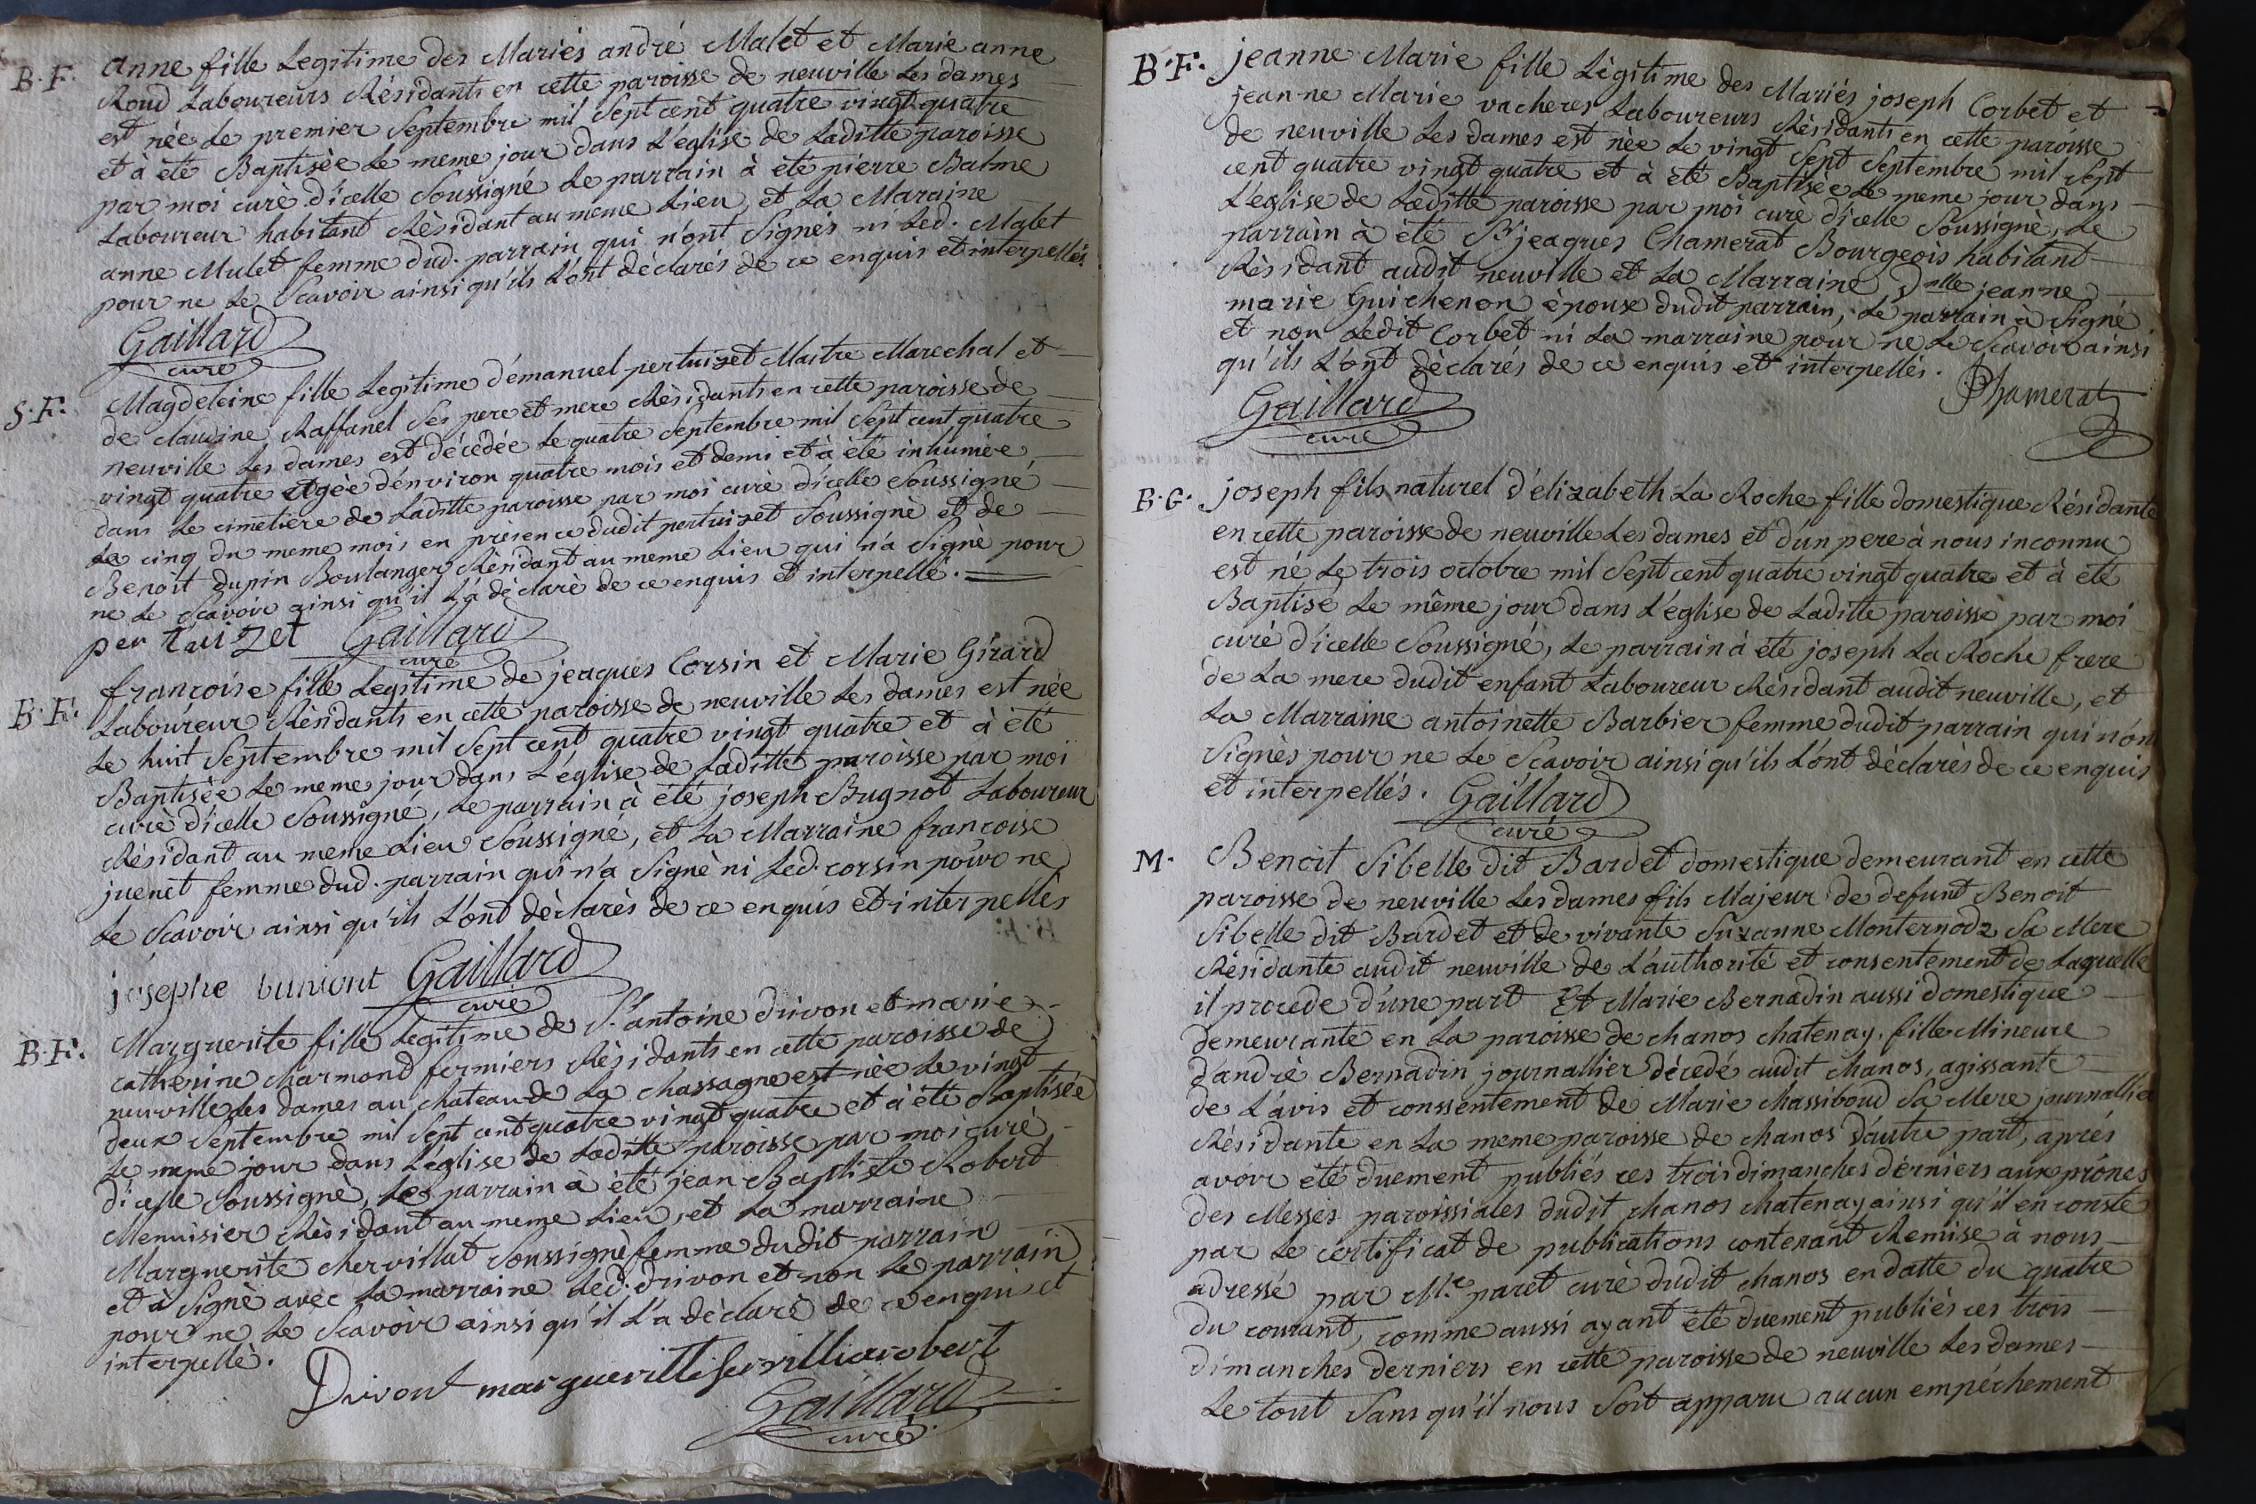 B. F. anne fille Legitime des Mariés andré Malet et Marie anne
Roud Laboureurs Résidants en cette paroisse de neuville Les dames
est née Le premier Septembre mil Sept cent quatre vingt quatre
et à été Baptisèe Le meme jour dans L'église de Laditte paroisse
par moi curè d'icelle Soussigné Le parrain à étè pierre Balme
Laboureur habitant Rèsidant au meme Lieu, et La Maraine
anne Mulet femme dud. parrain qui n'ont Signés ni Led. Malet
pour ne Le Scavoir ainsi qu'ils L'ont déclarés de ce enquis et interpellés.
Gaillard
curé
S. F. Magdeleine fille Legitime d'émanuel pertuizet Maitre Marechal et
de claudine Raffanel Ses pere et mere Rèsidants en cette paroisse de
neuville Les dames est décédée Le quatre Septembre mil Sept cent quatre
vingt quatre agèe d'énviron quatre mois et demi et à été inhumèe
dans Le cimetiere de Laditte paroisse par moi curè d'icelle Soussigné
Le cinq du meme mois en présence dudit pertuizet Soussignè et de
Benoit dupin Boulanger Rèsidant au meme Lieu qui n'a Signè pour
ne Le Scavoir ainsi qu'il L'à dèclarè de ce enquis et interpellè.
pertuizet Gaillard
curé
B. F. francoise fille Legitime de jeaques Corsin et Marie Girard
Laboureur Rèsidants en cette paroisse de neuville Les dames est née
Le huit Septembre mil Sept cent quatre vingt quatre et à été
Baptisèe Le meme jour dans L'église de Laditte paroisse par moi
curè d'icelle Soussigné, Le parrain à étè joseph Bugnot Laboureur
Rèsidant au meme Lieu Soussigné, et La Marraine francoise
juenet femme dud. parrain qui n'a Signè ni Led. corsin pour ne
Le Scavoir ainsi qu'ils L'ont dèclarès de ce enquis et interpellès
josephe buniont Gaillard
curé
B. F. Marguerite fille Legitime de Sr. antoine drivon et marie
catherine charmond fermiers Rèsidants en cette paroisse de
neuville Les dames au chateau de La chassagne est nèe Le vingt
deux Septembre mil Sept cent quatre vingt quatre et à été Baptisèe
Le meme jour dans L'église de Laditte paroisse par moi curè
d'icelle Soussignè, Le parrain à été jean Baptiste Robert
Menuisier Rèsidant au meme Lieu, et La marraine
Marguerite chervillat Soussignè femme dudit parrain
et à Signè avec La marraine Led. drivon et non Le parrain
pour ne Le Scavoir ainsi qu'il L'a dèclarè de ce enqui et
interpellè.
Drivont margueritte servilliarobert
Gaillard
curè
B. F. jeanne Marie fille Lègitime des Mariés joseph Corbet et
jeanne Marie vacheres Laboureurs Rèsidants en cette paroisse
de neuville Les dames est nèe Le vingt Sept Septembre mil Sept
cent quatre vingt quatre et à étè Baptisèe Le meme jour dans
L'èglise de Laditte paroisse par moi curè d'icelle Soussignè, Le
parrain à été Sr. jeaques Chamerat Bourgeois habitant
Rèsidant audit neuville et La Marraine Delle jeanne
marie Guichenon èpouse dudit parrain, Le parrain a Signé
et non Ledit Corbet ni La marraine pour ne Le Scavoir ainsi
qu'ils L'ont dèclarés de ce enquis et interpellés.
Gaillard Chamerat
curé
B. G. joseph fils naturel d'élizabeth La Roche fille domestique Résidante
en cette paroisse de neuville Les dames et d'un pere à nous inconnu
est né Le trois octobre mil Sept cent quatre vingt quatre et à étè
Baptisé Le même jour dans L'église de Laditte paroisse par moi
curè d'icelle Soussigné, Le parrain à été joseph La Roche frere
de La mere dudit enfant Laboureur Rèsidant audit neuville, et
La Marraine antoinette Barbier femme dudit parrain qui n'ont
Signès pour ne Le Scavoir ainsi qu'ils L'ont dèclarès de ce enquis
et interpellés. Gaillard
curé
M. Benoit Sibelle dit Bardet domestique demeurant en cette
paroisse de neuville Les dames fils Majeur de defunt Benoit
Sibelle dit Bardet et de vivante Suzanne Monternodz Sa Mere
Rèsidante audit neuville de L'authorité et consentement de Laquelle
il procede d'une part Et Marie Bernadin aussi domestique
demeurante en La paroisse de chanos chatenay, fille Mineure
d'andrè Bernadin journallier décedé audit chanos, agissante
de L'avis et conssentement de Marie chassiboud Sa Mere journallier
Rèsidante en La meme paroisse de chanos d'autre part, après
avoir été duement publiés ces trois dimanches dérniers aux prônes
des Messes paroissiales dudit chanos chatenay ainsi qu'il en conste
par Le certificat de publications contenant Remise à nous
adressé par Mre. paret curé dudit chanos en datte du quatre
du courant, comme aussi ayant été duement publiès ces trois
dimanches derniers en cette paroisse de neuville Les dames
Le tout Sans qu'il nous Soit apparu aucun empéchement